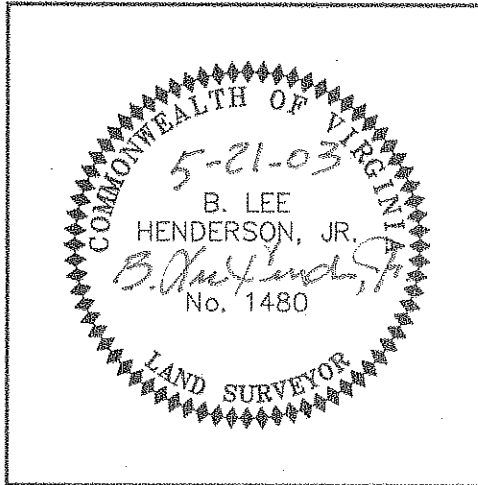 COMMONWEALTH OF VIRGINIA
5-21-03
B. LEE
HENDERSON, JR.
B. Lee Henderson, Jr.
No. 1480
LAND SURVEYOR